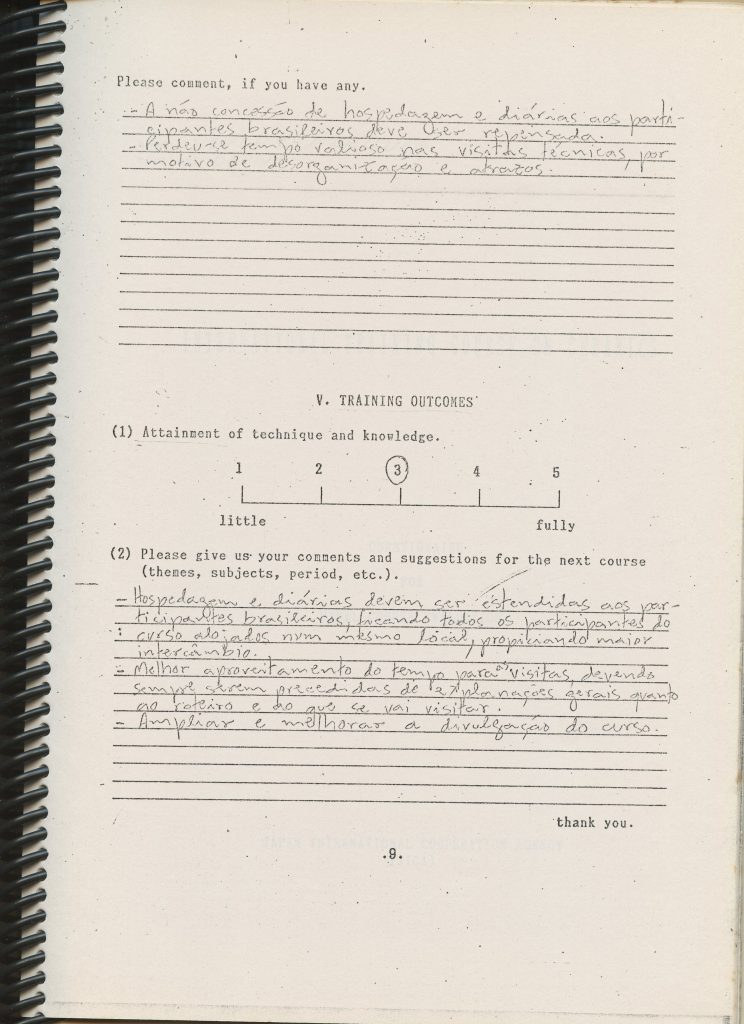 Please comment, if you have any.
- A não concessão de hospedagem e diárias aos parti-
cipantes brasileiros deve ser repensada.
- Perdeu-se tempo valioso nas visitas técnicas, por
motivo de desorganização e atrazos.
V. TRAINING OUTCOMES
(1) Attainment of technique and knowledge.
1 2 3 4 5
little fully
(2) Please give us your comments and suggestions for the next course
(themes, subjects, period, etc.).
- Hospedagem e diárias devem ser estendidas aos par-
ticipantes brasileiros, ficando todos os participantes do
curso alojados num mesmo local, propiciando maior
intercâmbio.
- Melhor aproveitamento do tempo para as visitas, devendo
sempre serem precedidas de explanações gerais quanto
ao roteiro e ao que se vai visitar.
- Ampliar e melhorar a divulgação do curso.
thank you.
.9.